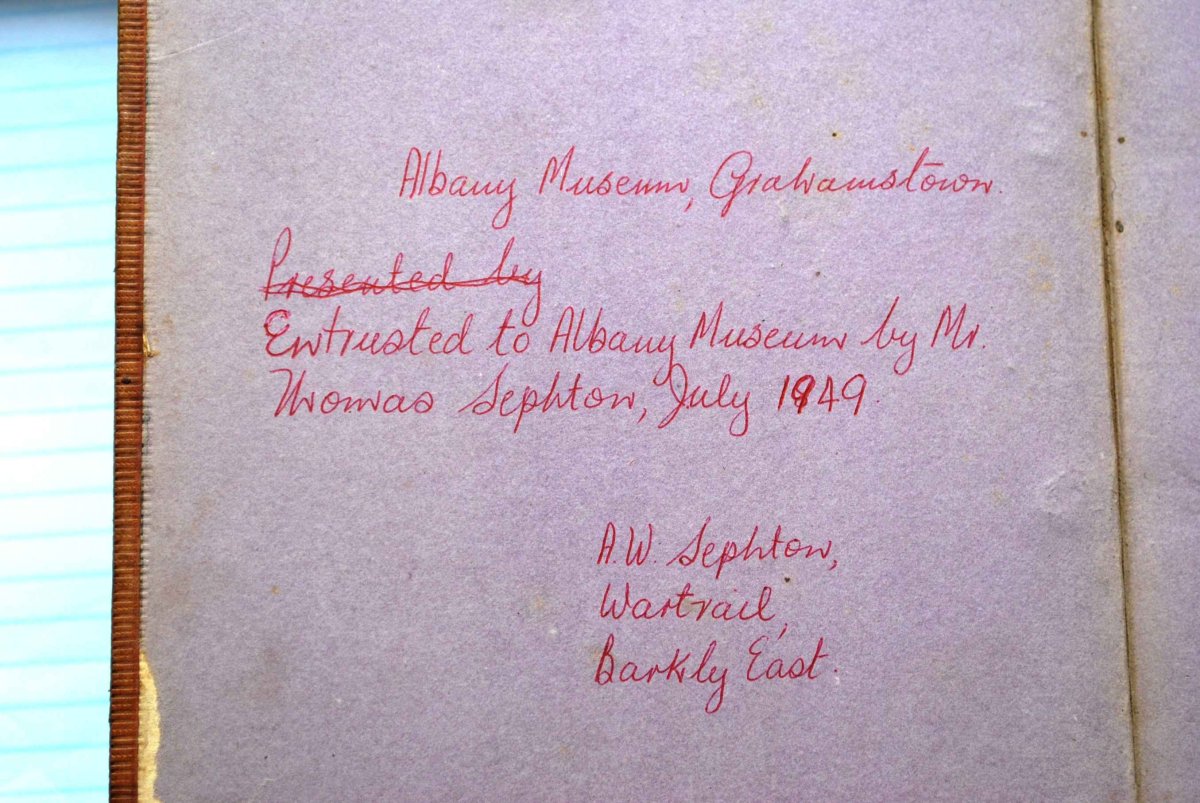 Albany Museum, Grahamstown.
Presented by
Entrusted to Albany Museum by Mr.
Thomas Sephton, July 1949.
A.W. Sephton,
Wartrail,
Barkly East.